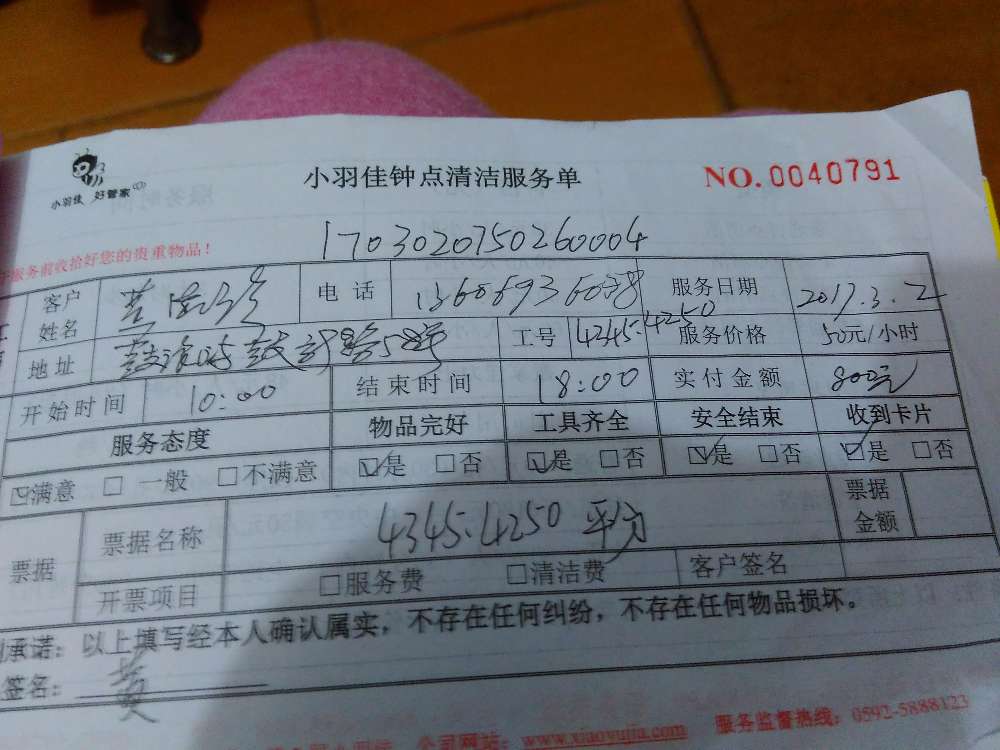 小羽佳 好管家
小羽佳钟点清洁服务单
NO. 0040791
服务前收拾好您的贵重物品！
1703020750260004
客户姓名
电话
服务日期 2017.3.2
地址
工号 4345.4250
服务价格 50元/小时
开始时间 10:00
结束时间 18:00
实付金额 800元
服务态度 物品完好 工具齐全 安全结束 收到卡片
☑满意 □一般 □不满意 ☑是 □否 ☑是 □否 ☑是 □否 ☑是 □否
票据 票据名称 4345.4250 平分 票据金额
开票项目 □服务费 □清洁费 客户签名
承诺：以上填写经本人确认属实，不存在任何纠纷，不存在任何物品损坏。
签名：黄
公司网站：www.xiaoyujia.com 服务监督热线：0592-5888123